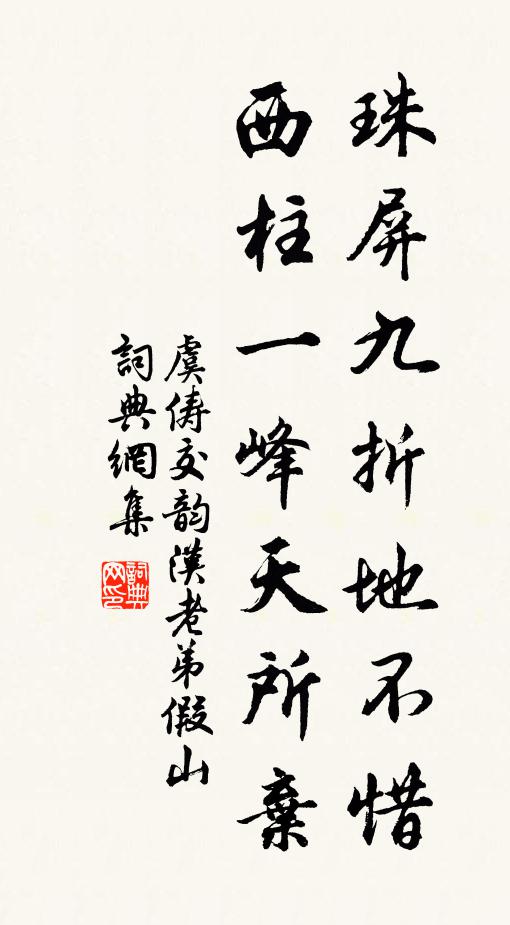 珠屏九折地不惜
西柱一峰天所棄
虞儔交韵漢老弟假山
詞典網集
詞典网印